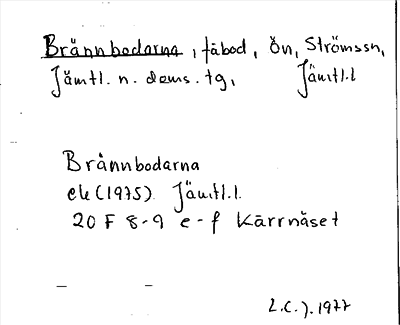 Brännbodarna, fäbod, Ön, Strömssn,
Jämtl. n. doms. tg, Jämtl.l
Brännbodarna
ek (1975) Jämtl.l.
20 F 8-9 e-f Kärrnäset
L.C.J. 1977